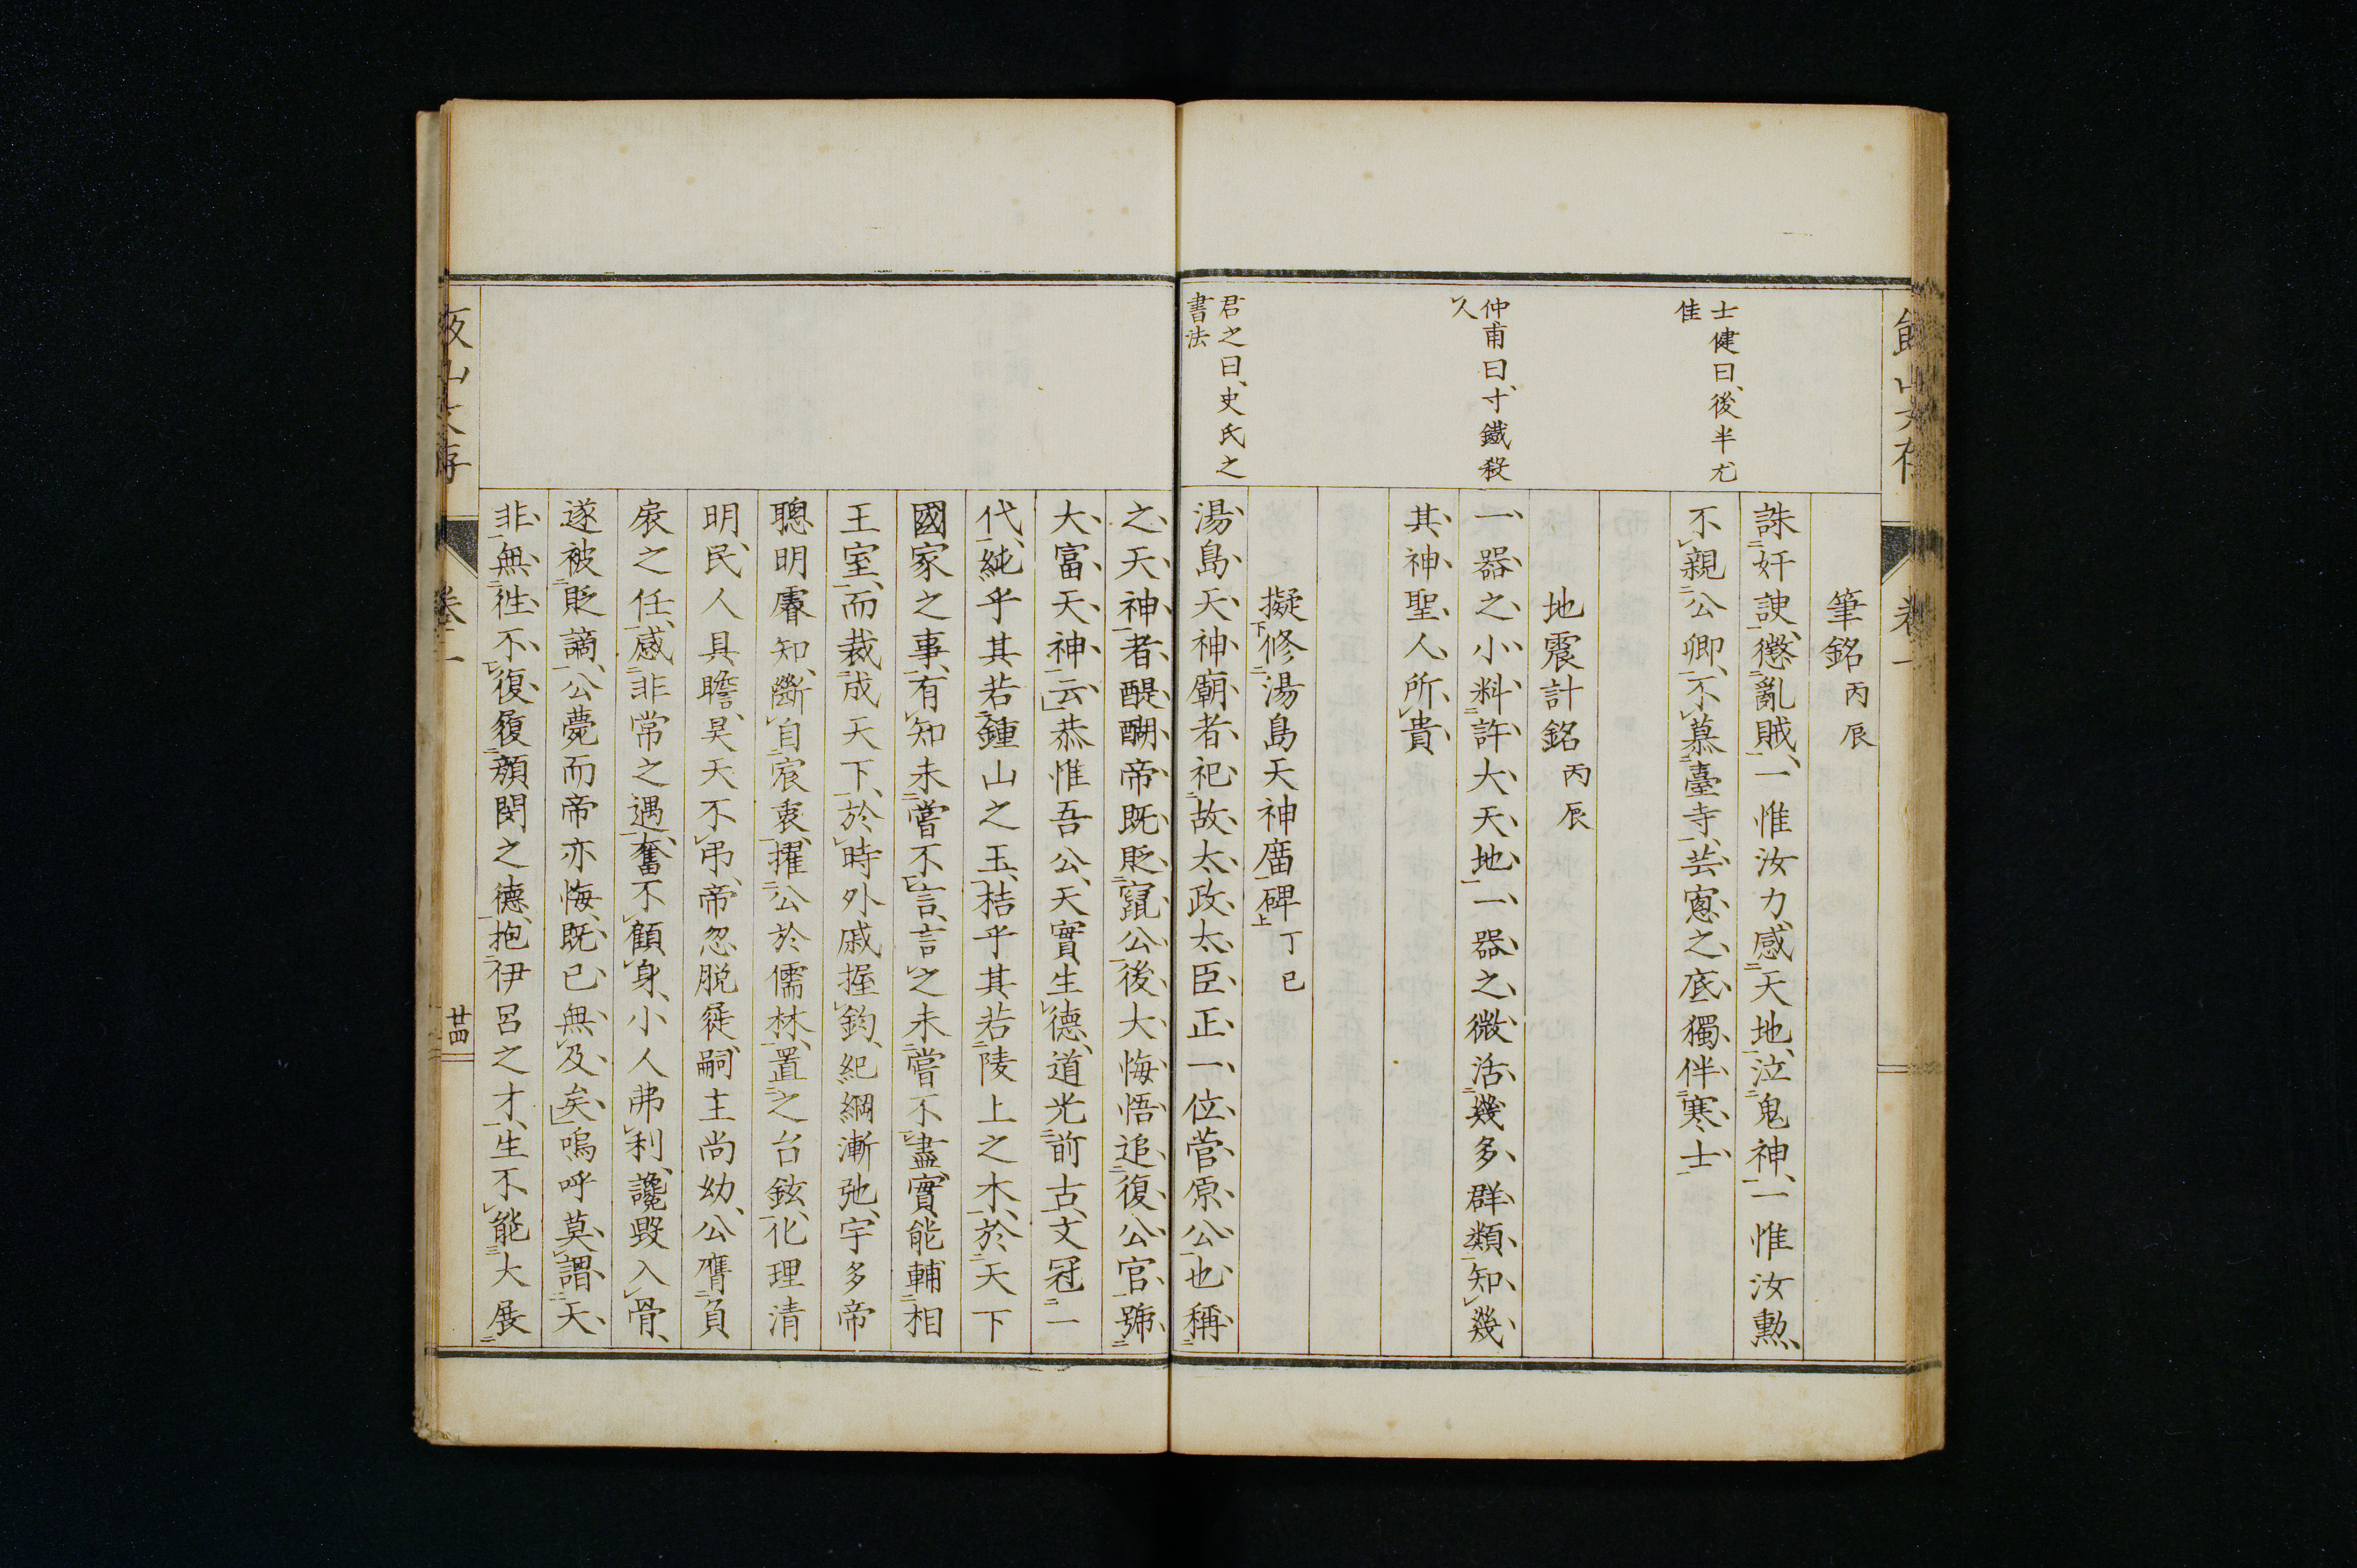 筆銘丙辰
士健曰、後半尤
佳
誅奸諛、懲亂賊、一惟汝力、感天地、泣鬼神、一惟汝勲、
不親公卿、不慕臺寺、芸窓之底、獨伴寒士
地震計銘丙辰
仲甫曰、寸鐵殺
人
一器之小、料許大天地、一器之微、活幾多群類、知幾
其神、聖人所貴
擬修湯島天神庿碑丁巳
君之曰、史氏之
書法
湯島天神廟者、祀故太政太臣正一位菅原公也、稱
之天神者、醍醐帝既貶竄公、後大悔悟、追復公官、號
大富天神云、恭惟吾公、天實生德、道光前古、文冠一
代、純乎其若鍾山之玉、桔乎其若陵上之木、於天下
國家之事、有知未嘗不言、言之未嘗不盡、實能輔相
王室、而裁成天下、於時外戚握鈞、紀綱漸弛、宇多帝
聰明睿知、斷自宸衷、擢公於儒林、置之台鉉、化理清
明、民人具瞻、昊天不弔、帝忽脱屣、嗣主尚幼、公膺負
扆之任、感非常之遇、奮不顧身、小人弗利、讒毀入骨、
遂被貶謫、公薨而帝亦悔、既已無及矣、嗚呼莫謂天
非無往不復、履顔閔之德、抱伊呂之才、生不能大展
卷一
廿四